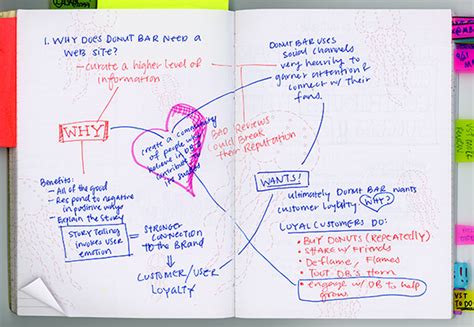 1. WHY DOES DONUT BAR NEED A
WEB SITE?
- curate a higher level of
information
WHY
create a community
of people who
believe in DB &
contribute
Benefits:
- All of the Good
- Respond to negative
in positive ways
- Explain the Story
STORY Telling
invokes user
emotion
=
STRONGER
CONNECTION
TO the BRAND
CUSTOMER/USER
LOYALTY
DONUT BAR USES
social channels
very heavily to
garner attention &
connect w/ their
fans.
BAD Reviews
could Break
their Reputation
WANTS!
ultimately Donut BAR wants
customer loyalty WHY?
LOYAL CUSTOMERS DO:
• BUY DONUTS (REPEATEDLY)
• SHARE w/ Friends
• Deflame, Flames
• TOUT DB's Horn
• engage w/ DB to help
grow